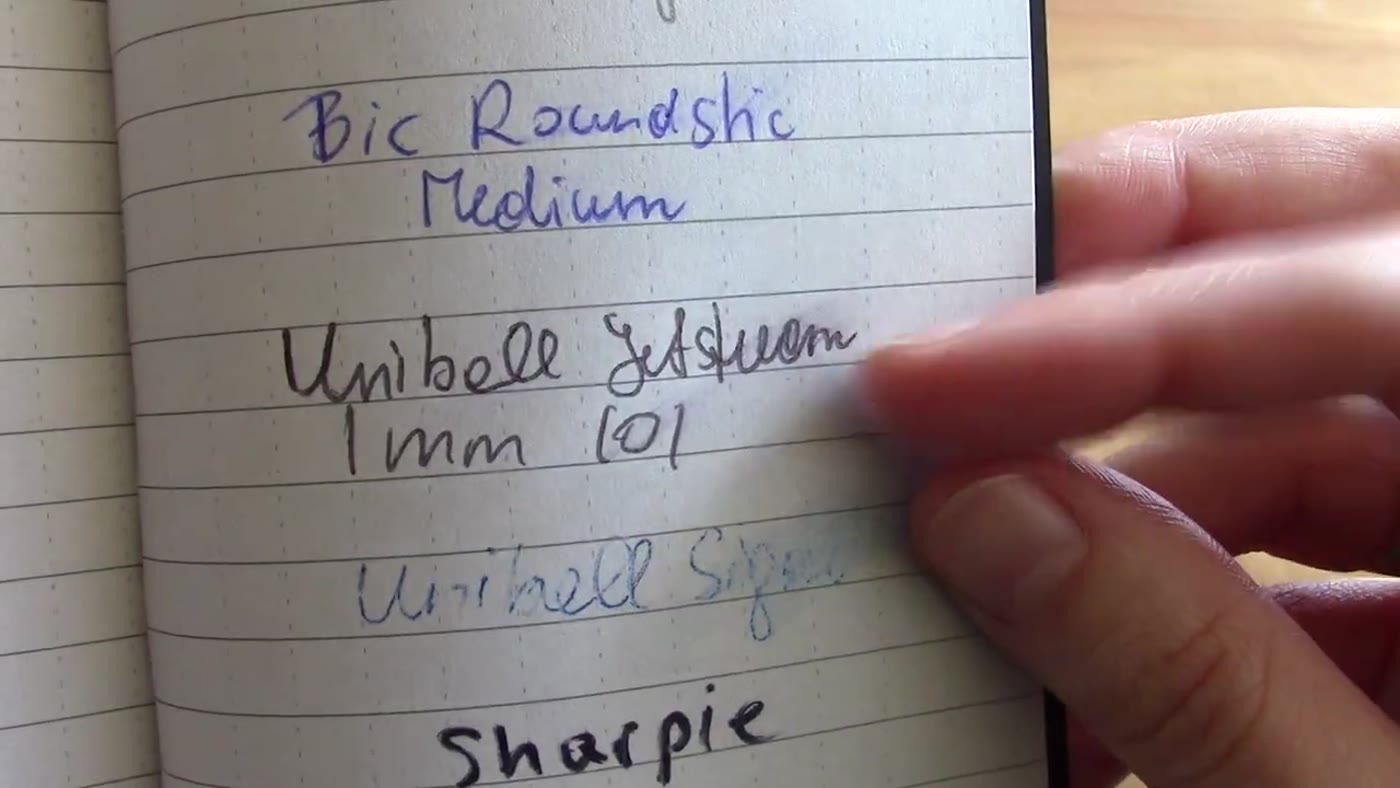 Bic Roundstic
Medium
Uniball Jetstream
1mm 101
Uniball Signo
Sharpie